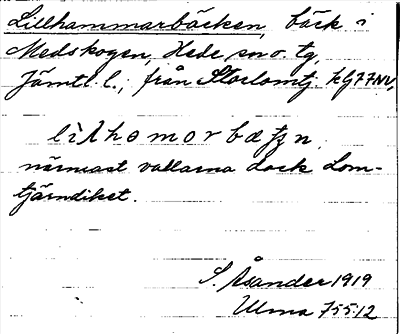 Lillhammarbäcken, bäck i
Medskogen, Hede sn o. tg,
Jämtl. l.; från Storlomtj. kG77NV,
lilhomorbæҭn
närmast vallarna dock Lom-
tjärndiket.
S. Åsander 1919
Ulma 755:12